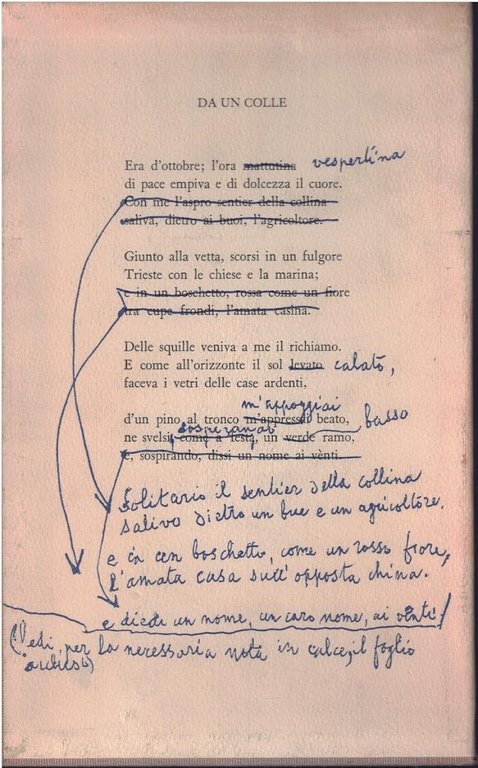 DA UN COLLE
Era d'ottobre; l'ora mattutina vespertina
di pace empiva e di dolcezza il cuore.
Con me l'aspro sentier della collina
saliva, dietro ai buoi, l'agricoltore.
Giunto alla vetta, scorsi in un fulgore
Trieste con le chiese e la marina;
e in un boschetto, rossa come un fiore
tra cupe frondi, l'amata casina.
Delle squille veniva a me il richiamo.
E come all'orizzonte il sol levato calato,
faceva i vetri delle case ardenti,
m'appoggiai
d'un pino al tronco m'appressai beato,
sospirando basso
ne svelsi, come a festa, un verde ramo,
e, sospirando, dissi un nome ai vènti.
Solitario il sentier della collina
salivo dietro un bue e un agricoltore.
e in un boschetto, come un rosso fiore,
l'amata casa sull'opposta china.
e diedi un nome, un caro nome, ai vènti!
(Vedi, per la necessaria nota in calce, il foglio
accluso)